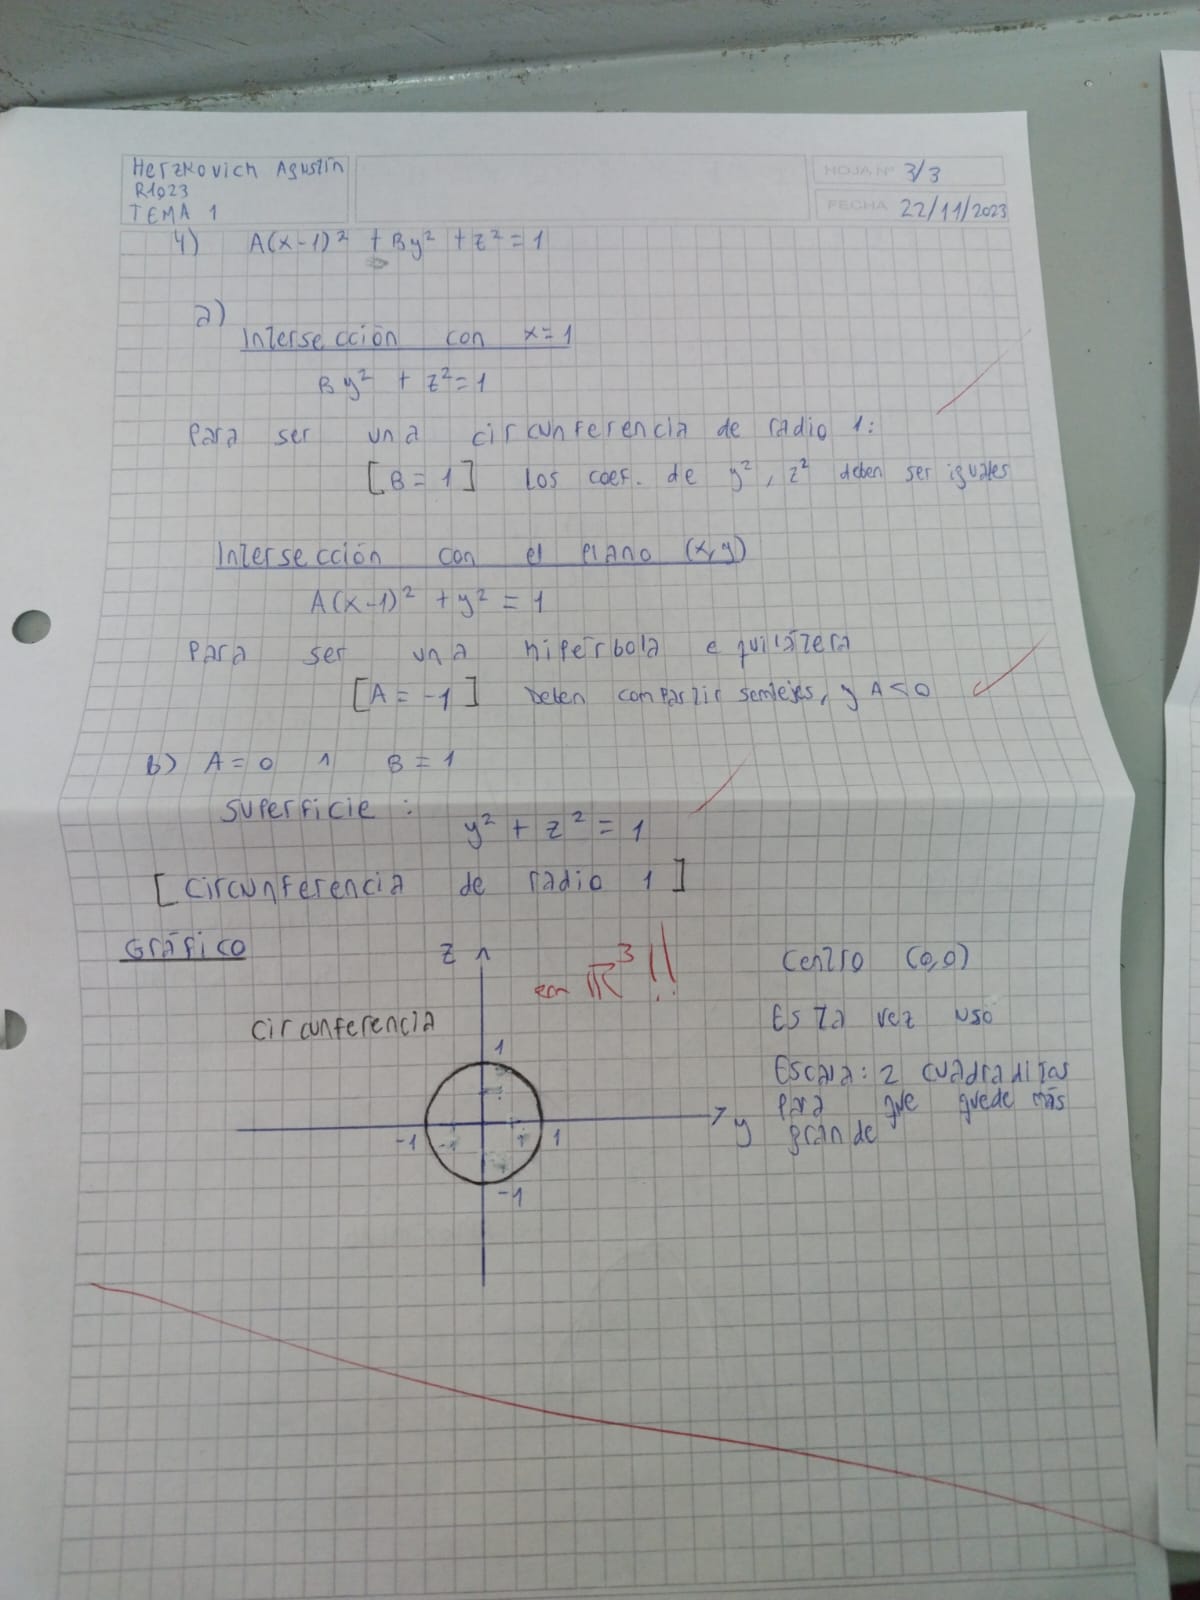 Herzkovich Agustín
R1023
TEMA 1
HOJA Nº 3/3
FECHA 22/11/2023
4) A(x-1)² + By² + z² = 1
a)
Intersección con x=1
By² + z² = 1
Para ser una circunferencia de radio 1:
[B = 1] Los coef. de y², z² deben ser iguales
Intersección con el plano (x,y)
A(x-1)² + y² = 1
Para ser una hipérbola equilátera
[A = -1] Deben compartir semiejes, y A<0
b) A = 0 ∧ B = 1
Superficie:
y² + z² = 1
[Circunferencia de radio 1]
Gráfico
z
en ℝ³!!
Centro (0,0)
circunferencia
Esta vez uso
Escala: 2 cuadraditos
para que quede más
grande
1
-1
1
y
-1